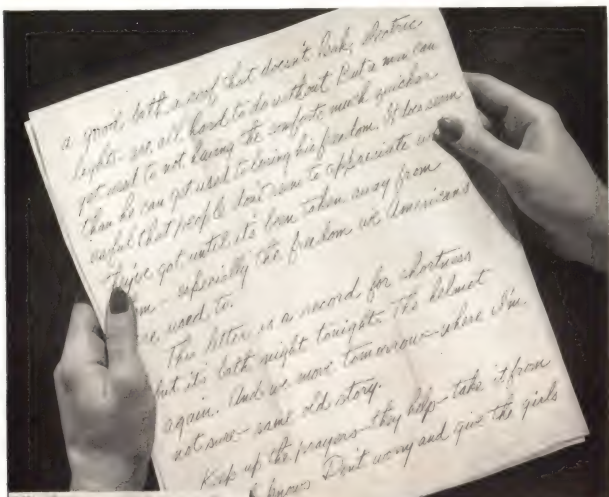 a good bath, a roof that doesn't leak, electric
lights – are all hard to do without. But a man can
get used to not having the comforts much quicker
than he can get used to losing his freedom. It does seem
awful that people don't seem to appreciate
they've got until it's been taken away from
– especially the freedom we Americans
used to.
This letter is a record for shortness
but it's bath night tonight. The helmet
again. And we move tomorrow – where I'm
not sure – same old story.
Keep up the prayers – they help – take it from
knows. Don't worry and give the girls